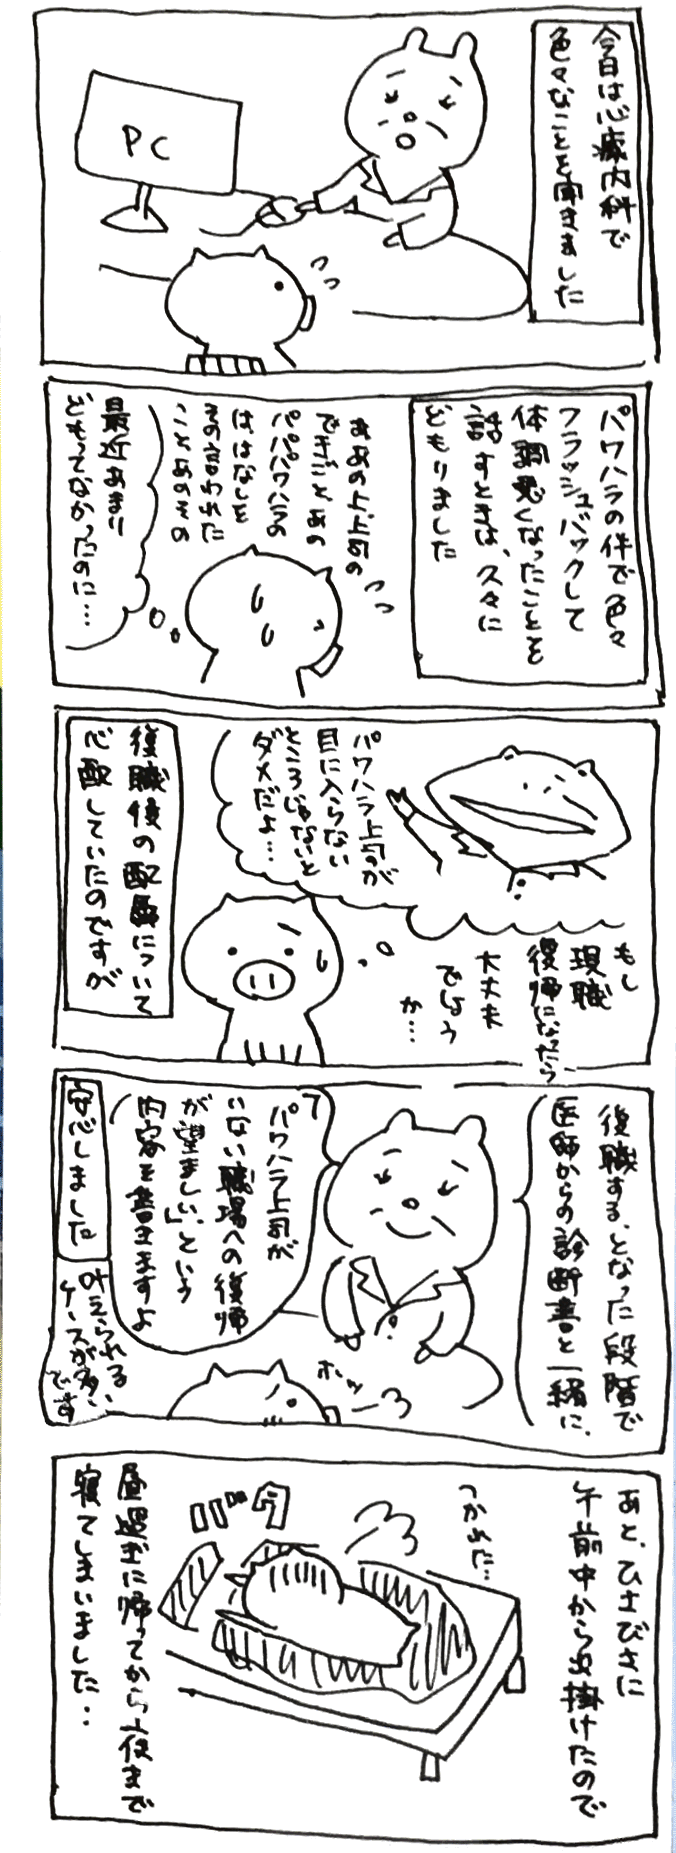 今日は心療内科で
色々なことを聞きました
PC
パワハラの件で色々
フラッシュバックして
体調悪くなったことを
話すときは、久々に
どもりました
ああの上、上司の
できごとあの
パパパワハラの
ははなしを
その言われた
ことあのその
最近あまり
どもってなかったのに…
パワハラ上司が
目に入らない
ところじゃないと
ダメだよ…
もし
現職
復帰になったら
大丈夫
でしょう
か…
復職後の配属について
心配していたのですが
復職する、となった段階で
医師からの診断書と一緒に、
「パワハラ上司が
いない職場への復帰
が望ましい」という
内容を書きますよ
ホッ
安心しました
叶えられる
ケースが多い
です
あと、ひさびさに
午前中から出掛けたので
つかれた…
昼過ぎに帰ってから夜まで
寝てしまいました・・